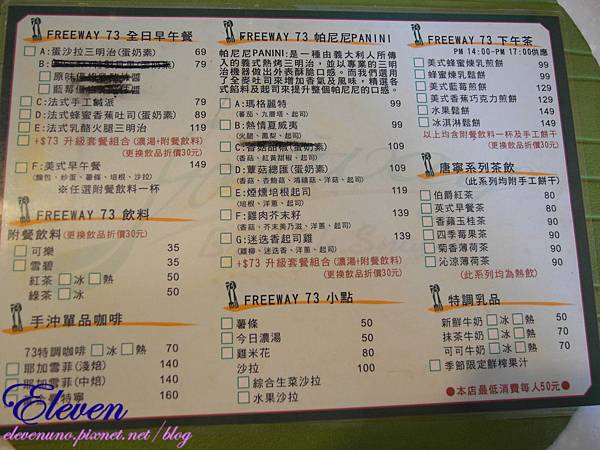 FREEWAY 73 全日早午餐
A:蛋沙拉三明治(蛋奶素) 69
79
C:法式手工鹹派 79
D:法式蜂蜜香蕉吐司(蛋奶素) 89
E:法式乳酪火腿三明治 119
+$73 升級套餐組合(濃湯+附餐飲料)
(更換飲品折價30元)
F:美式早午餐 149
(麵包、炒蛋、薯條、培根、沙拉)
※任選附餐飲料一杯
FREEWAY 73 飲料
附餐飲料(更換飲品折價30元)
可樂 35
雪碧 35
紅茶 冰 熱 50
綠茶 冰 50
手沖單品咖啡
73特調咖啡 冰 熱 70
耶加雪菲(淺焙) 140
耶加雪菲(中焙) 140
160
FREEWAY 73 帕尼尼PANINI
帕尼尼PANINI:是一種由義大利人所傳
入的義式熱烤三明治，並以專業的三明
治機器做出外表酥脆口感。而我們選用
了全麥吐司來增加香氣及風味，精選各
式餡料及起司來提升整個帕尼尼的口感。
A:瑪格麗特 99
(番茄、九層塔、起司)
B:熱情夏威夷 99
(火腿、鳳梨、起司)
109
(香菇、紅黃甜椒、起司)
D:蕈菇總匯(蛋奶素) 109
(香菇、杏鮑菇、鴻禧菇、洋菇、起司)
E:煙燻培根起司 119
(培根、洋蔥、起司)
F:雞肉芥末籽 139
(香菇、芥末美乃滋、洋蔥、起司)
G:迷迭香起司雞 139
(雞柳、迷迭香、洋蔥、起司)
+$73 升級套餐組合(濃湯+附餐飲料)
(更換飲品折價30元)
FREEWAY 73 小點
薯條 50
今日濃湯 50
雞米花 80
沙拉 100
綜合生菜沙拉
水果沙拉
FREEWAY 73 下午茶
PM 14:00-PM 17:00供應
美式蜂蜜煉乳煎餅 99
蜂蜜煉乳鬆餅 99
美式藍莓煎餅 129
美式香蕉巧克力煎餅 129
水果鬆餅 149
冰淇淋鬆餅 149
以上均含附餐飲料一杯及手工餅干
(更換飲品折價30元)
唐寧系列茶飲
(此系列均附手工餅干)
伯爵紅茶 80
英式早餐茶 80
香蘋玉桂茶 90
四季莓果茶 90
菊香薄荷茶 90
沁涼薄荷茶 90
(此系列均為熱飲)
特調乳品
新鮮牛奶 冰 熱 50
抹茶牛奶 冰 熱 70
可可牛奶 冰 熱 70
季節限定鮮榨果汁
●本店最低消費每人50元●
Eleven
elevenuno.pixnet.net/blog